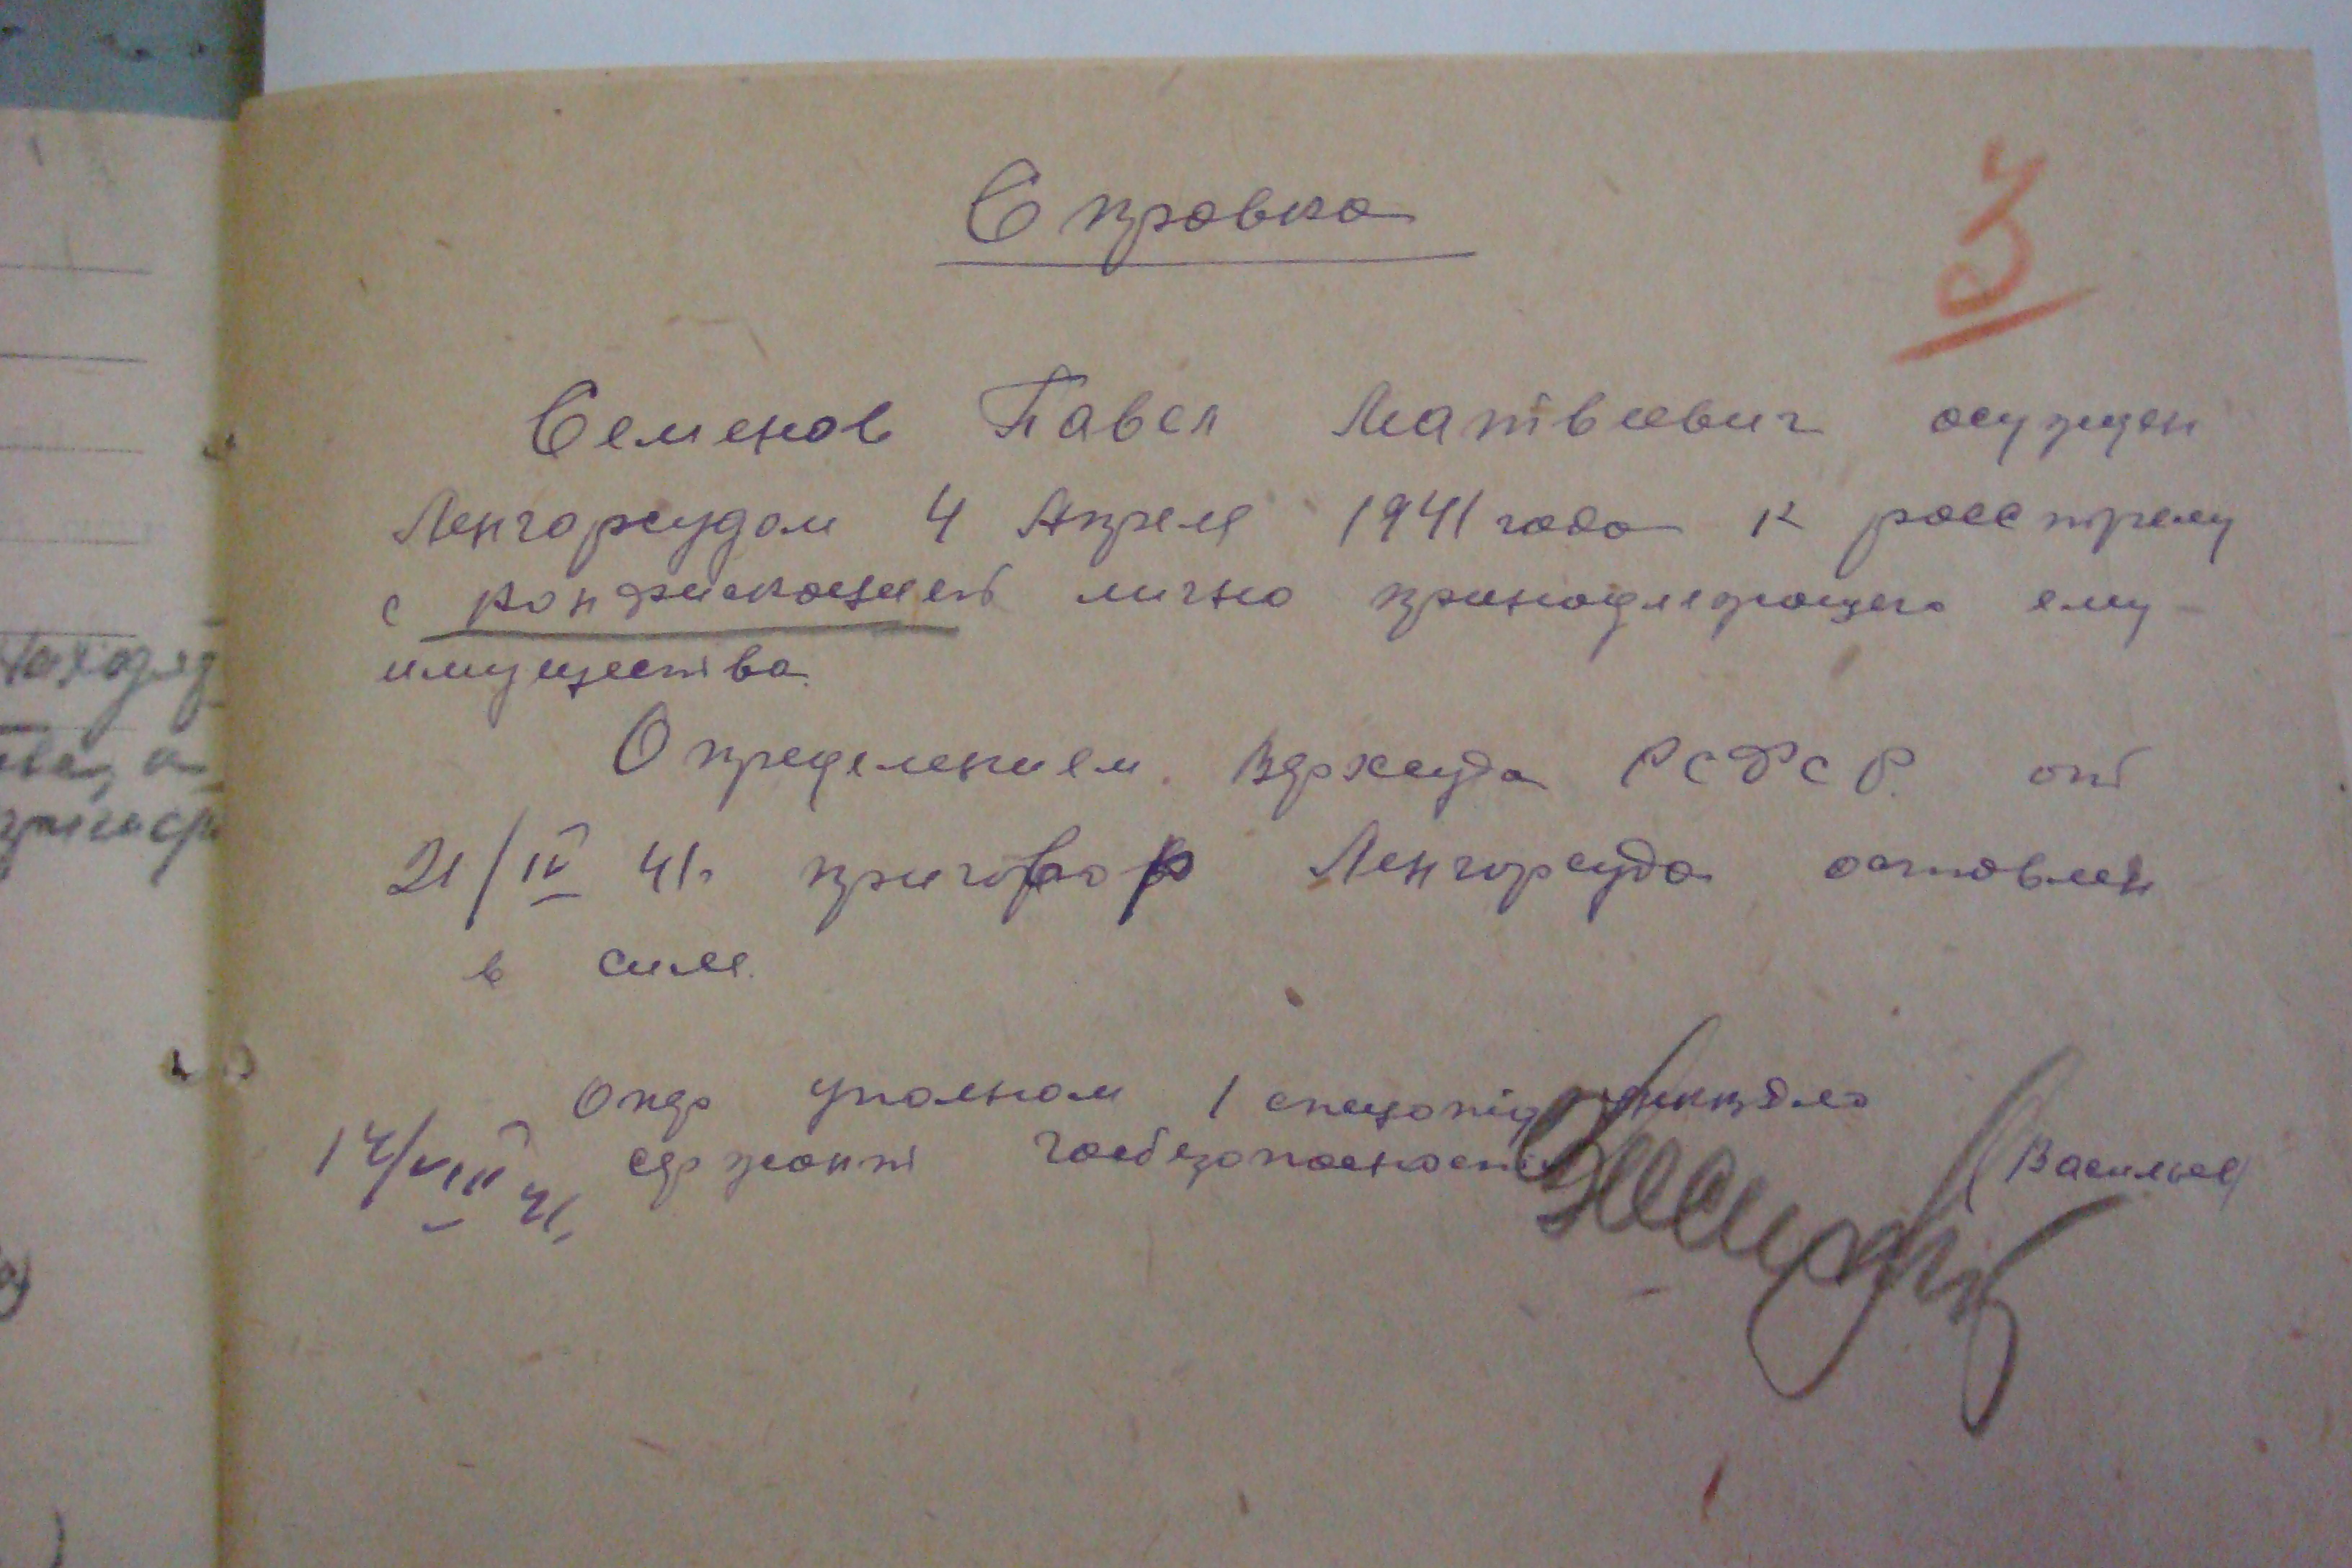 Справка
3
Семенов Павел Матвеевич осужден
Ленгорсудом 4 Апреля 1941 года к расстрелу
с конфискацией лично принадлежащего ему
имущества.
Определением Верхсуда РСФСР. от
21/IV 41. приговор Ленгорсуда оставлен
в силе.
Опер уполном 1 спецотд
14/VIII 41. сержант Госбезопасности (Васильев)